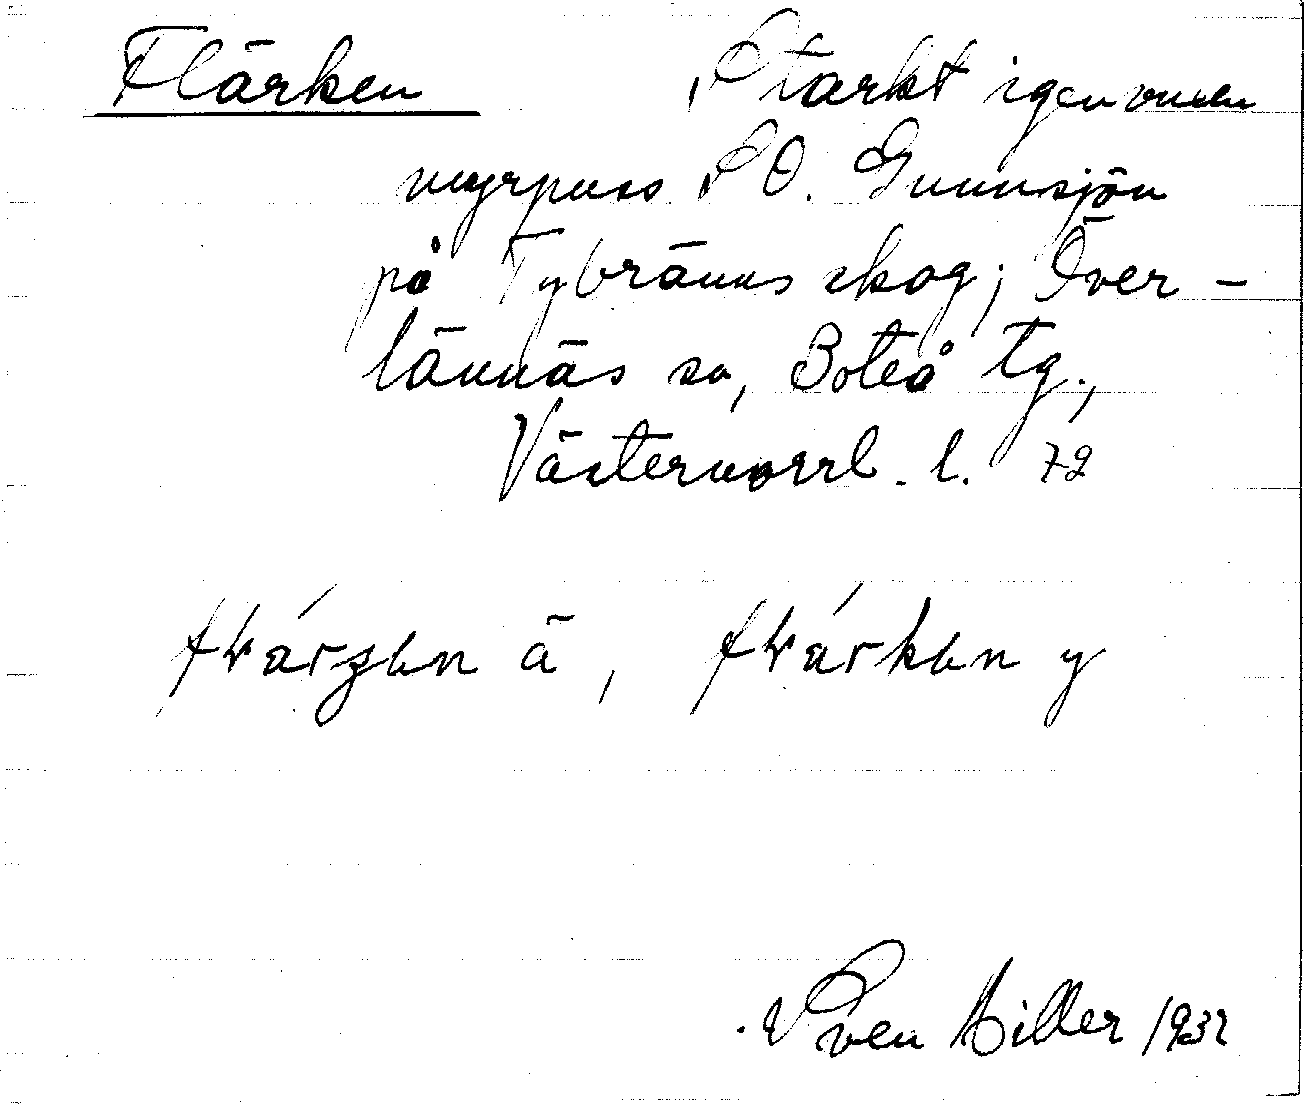 Flärken Starkt igenvuxen
myrpuss SO. Gunnsjön
på Tybränns skog; Över-
lännäs sn, Boteå tg.,
Västernorrl. l. 72
ä, y
Sven Hiller 1932